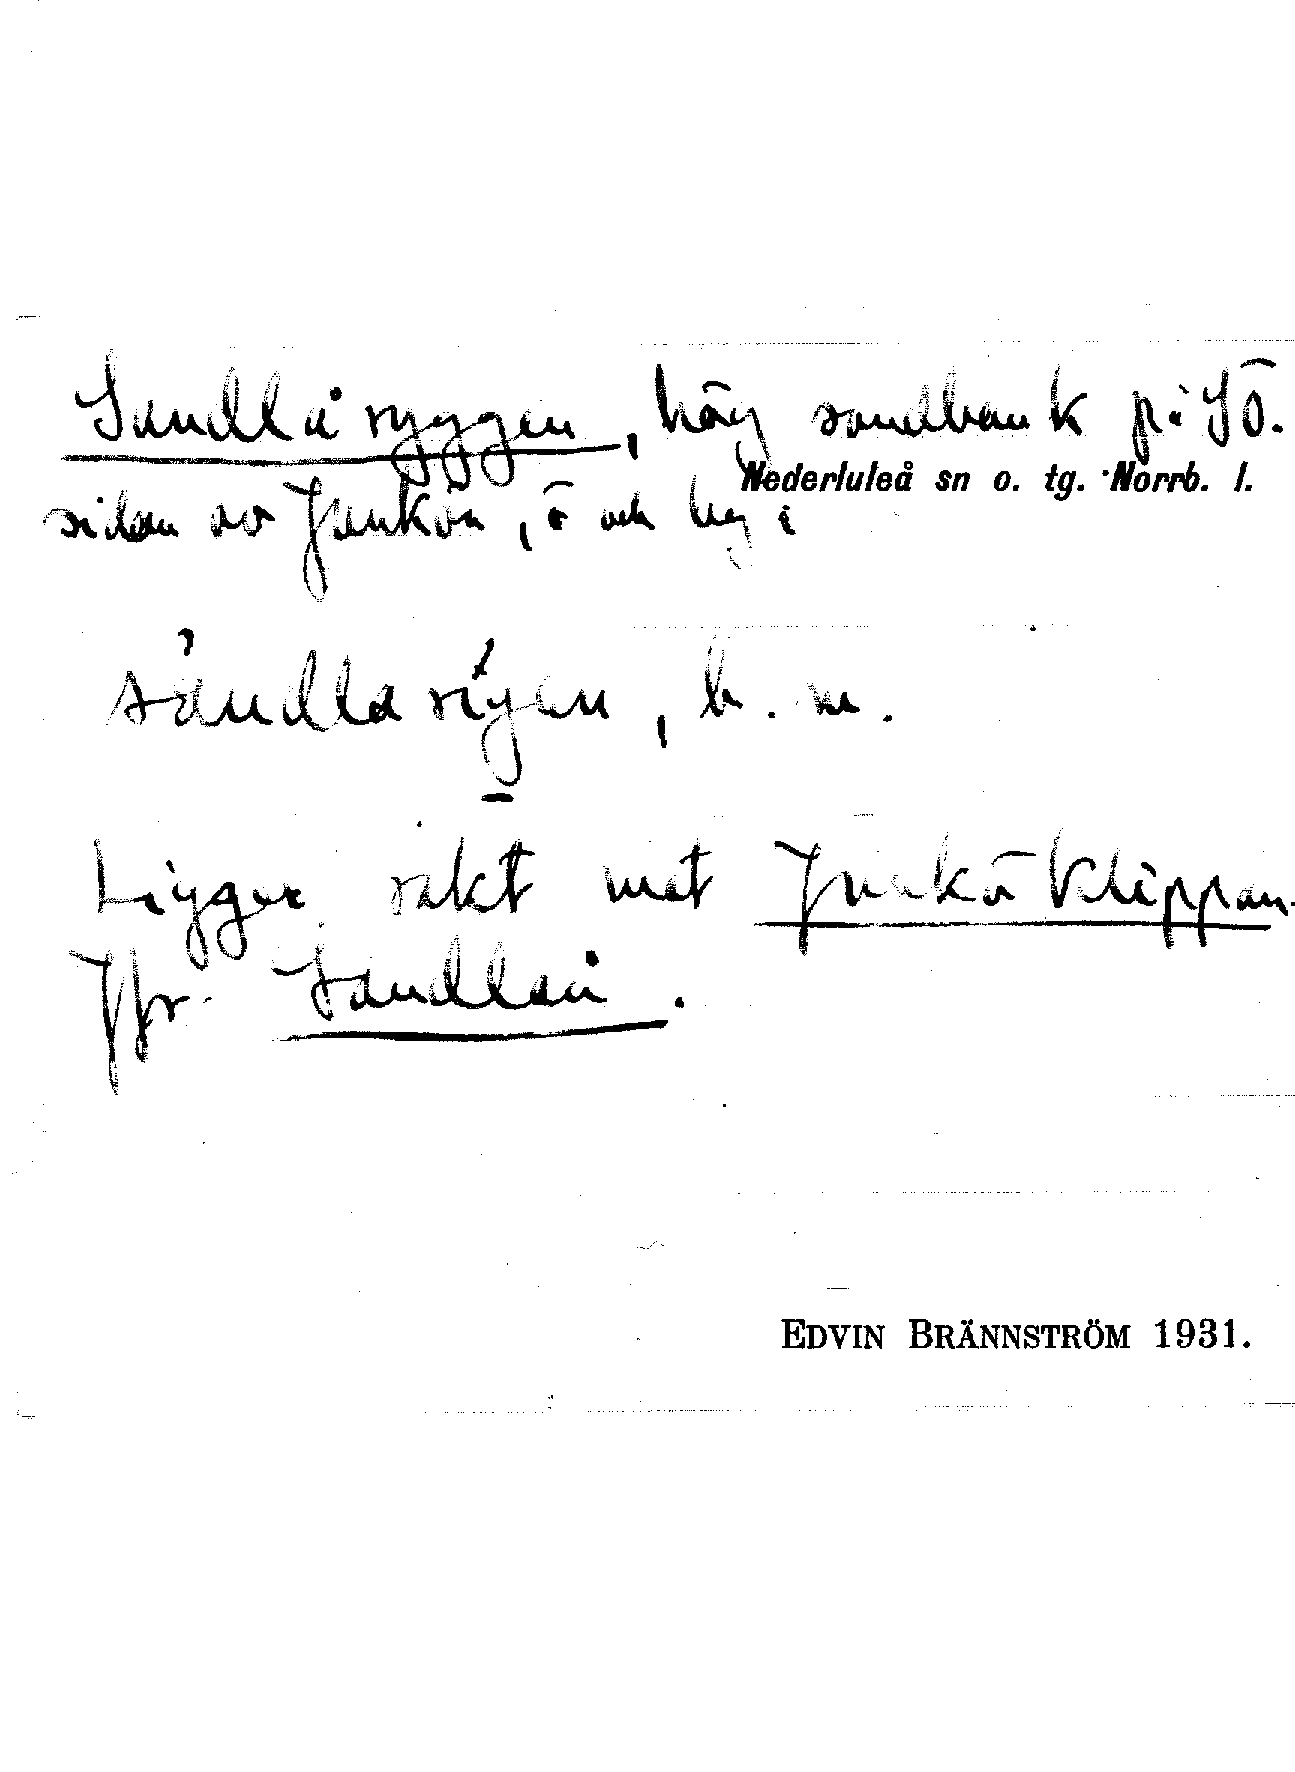 Sandlåryggen, hög sandbank på SÖ.
Nederluleå sn o. tg. Norrb. l.
sidan av Junkön, ö och hg i
sàndlarýgen, b. m.
Ligger rakt mot Junkö Klippan.
Jfr. Sandlån.
EDVIN BRÄNNSTRÖM 1931.